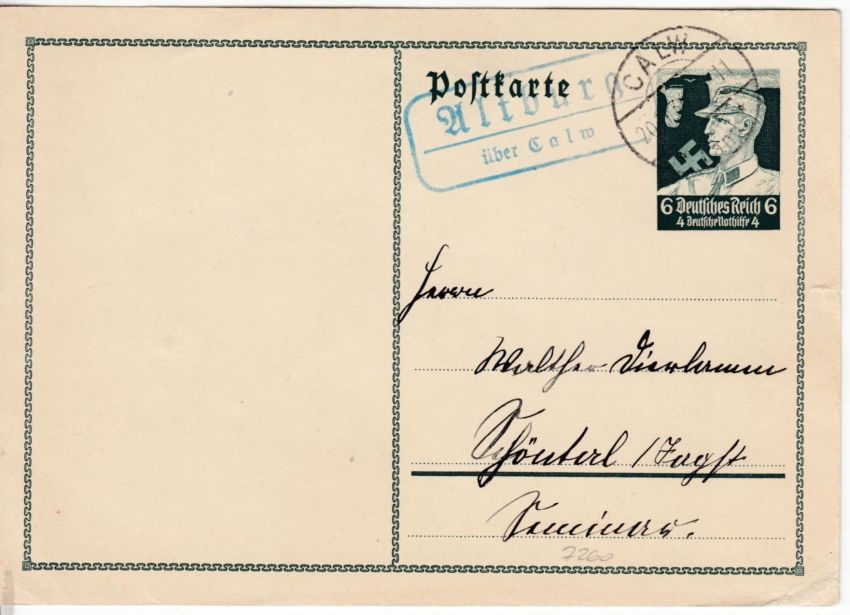 Postkarte
Altburg
über Calw
CALW
20.
11
6 Deutsches Reich 6
4 Deutsche Nothilfe 4
Herrn
Walther Dierlamm
Schöntal /Jagst
Seminar.
7260